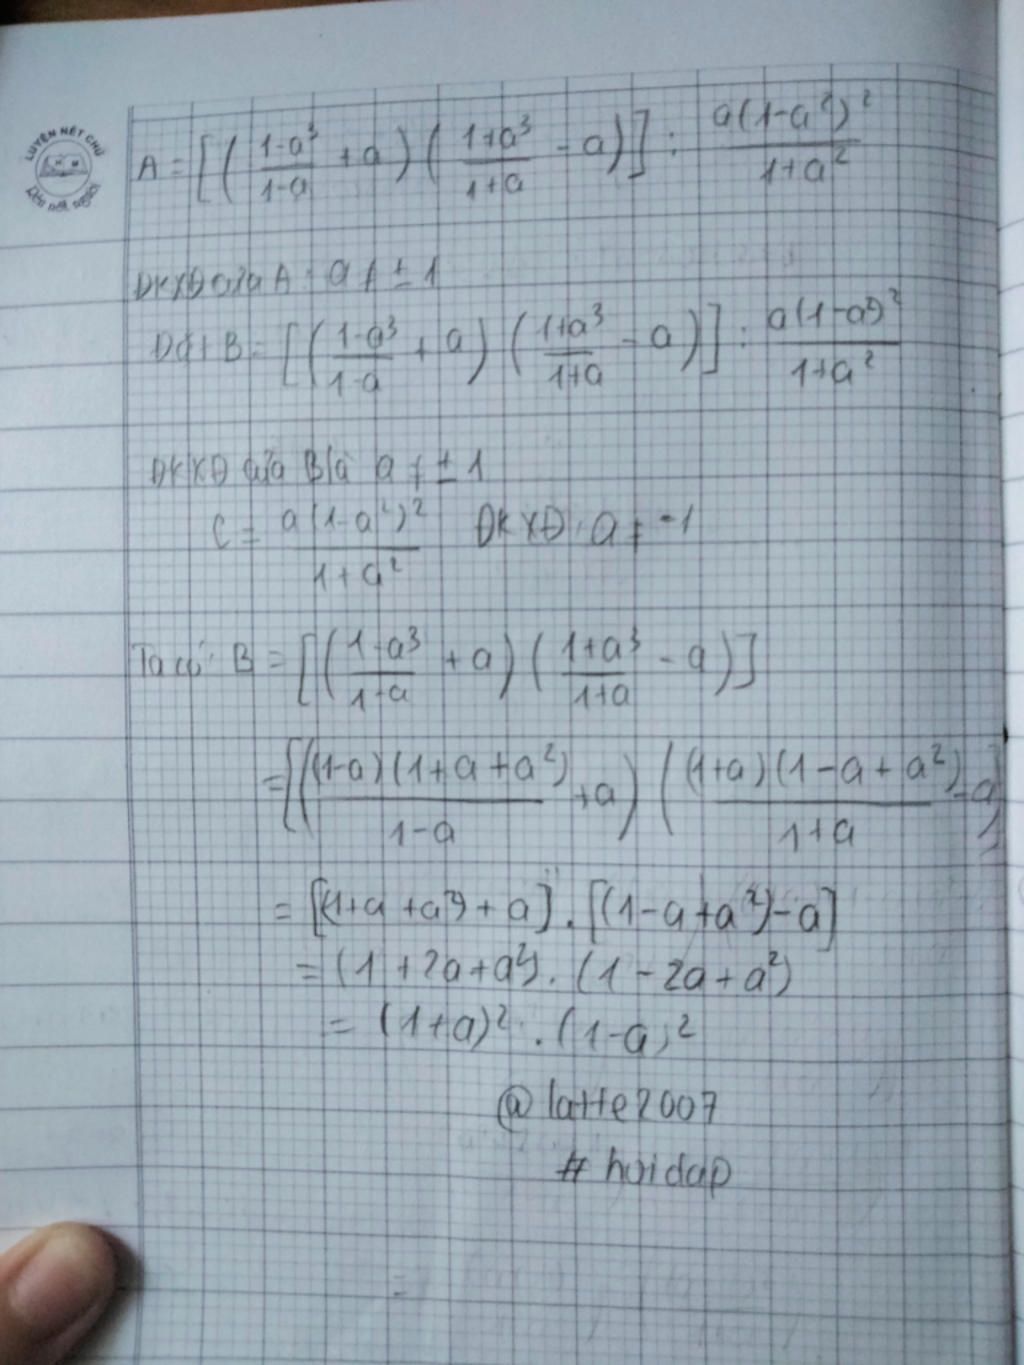 LUYỆN NÉT CHỮ
Rèn nết người
A = [(\frac{1-a^3}{1-a} + a)(\frac{1+a^3}{1+a} - a)] : \frac{a(1-a^2)^2}{1+a^2}
ĐKXĐ của A : a ≠ ± 1
Đặt B = [(\frac{1-a^3}{1-a} + a)(\frac{1+a^3}{1+a} - a)] : \frac{a(1-a^2)^2}{1+a^2}
ĐKXĐ của B là a ≠ ± 1
C = \frac{a(1-a^2)^2}{1+a^2} ĐKXĐ : a ≠ -1
Ta có : B = [(\frac{1-a^3}{1-a} + a)(\frac{1+a^3}{1+a} - a)]
= [(\frac{(1-a)(1+a+a^2)}{1-a} + a)(\frac{(1+a)(1-a+a^2)}{1+a} - a)]
= [(1+a+a^2)+a] . [(1-a+a^2)-a]
= (1+2a+a^2) . (1-2a+a^2)
= (1+a)^2 . (1-a)^2
@latte2007
# hoidap